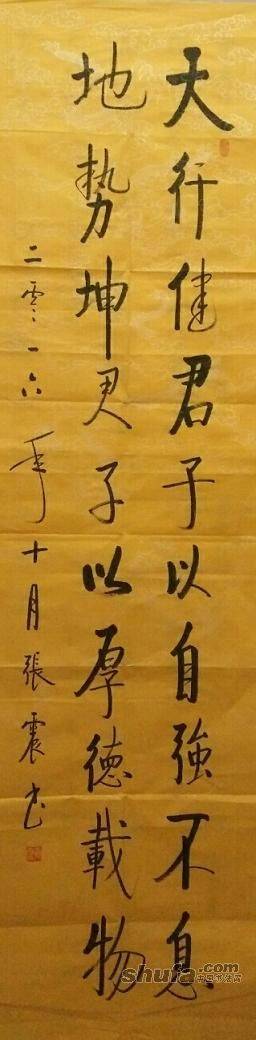 天行健君子以自強不息
地勢坤君子以厚德載物
二零一六年十月張震书
shufa.com